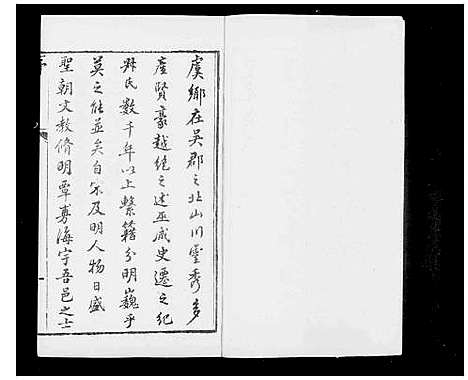 虞鄉在吳郡之北山川靈秀多
產賢豪越絕之述巫咸史遷之紀
冄氏數千年以上繫籍分明巍乎
莫之能並矣自宋及明人物日盛
聖朝文教脩明覃旉海宇吾邑之士